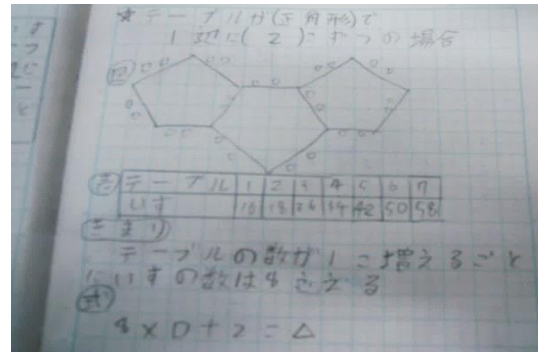 ★テーブルが(正角形)で
1辺に(2)こずつの場合
図
表 テーブル 1 2 3 4 5 6 7
いす 10 18 26 34 42 50 58
きまり
テーブルの数が1こ増えるごと
にいすの数は8こふえる
式
8×□+2=△